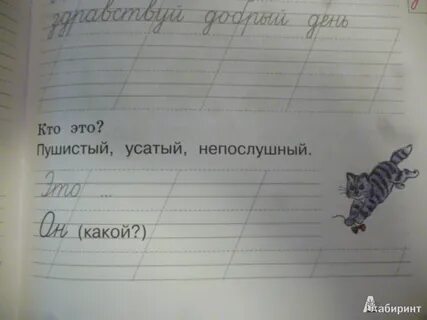 здравствуй добрый день
Кто это?
Пушистый, усатый, непослушный.
Это ...
Он (какой?)
Лабиринт